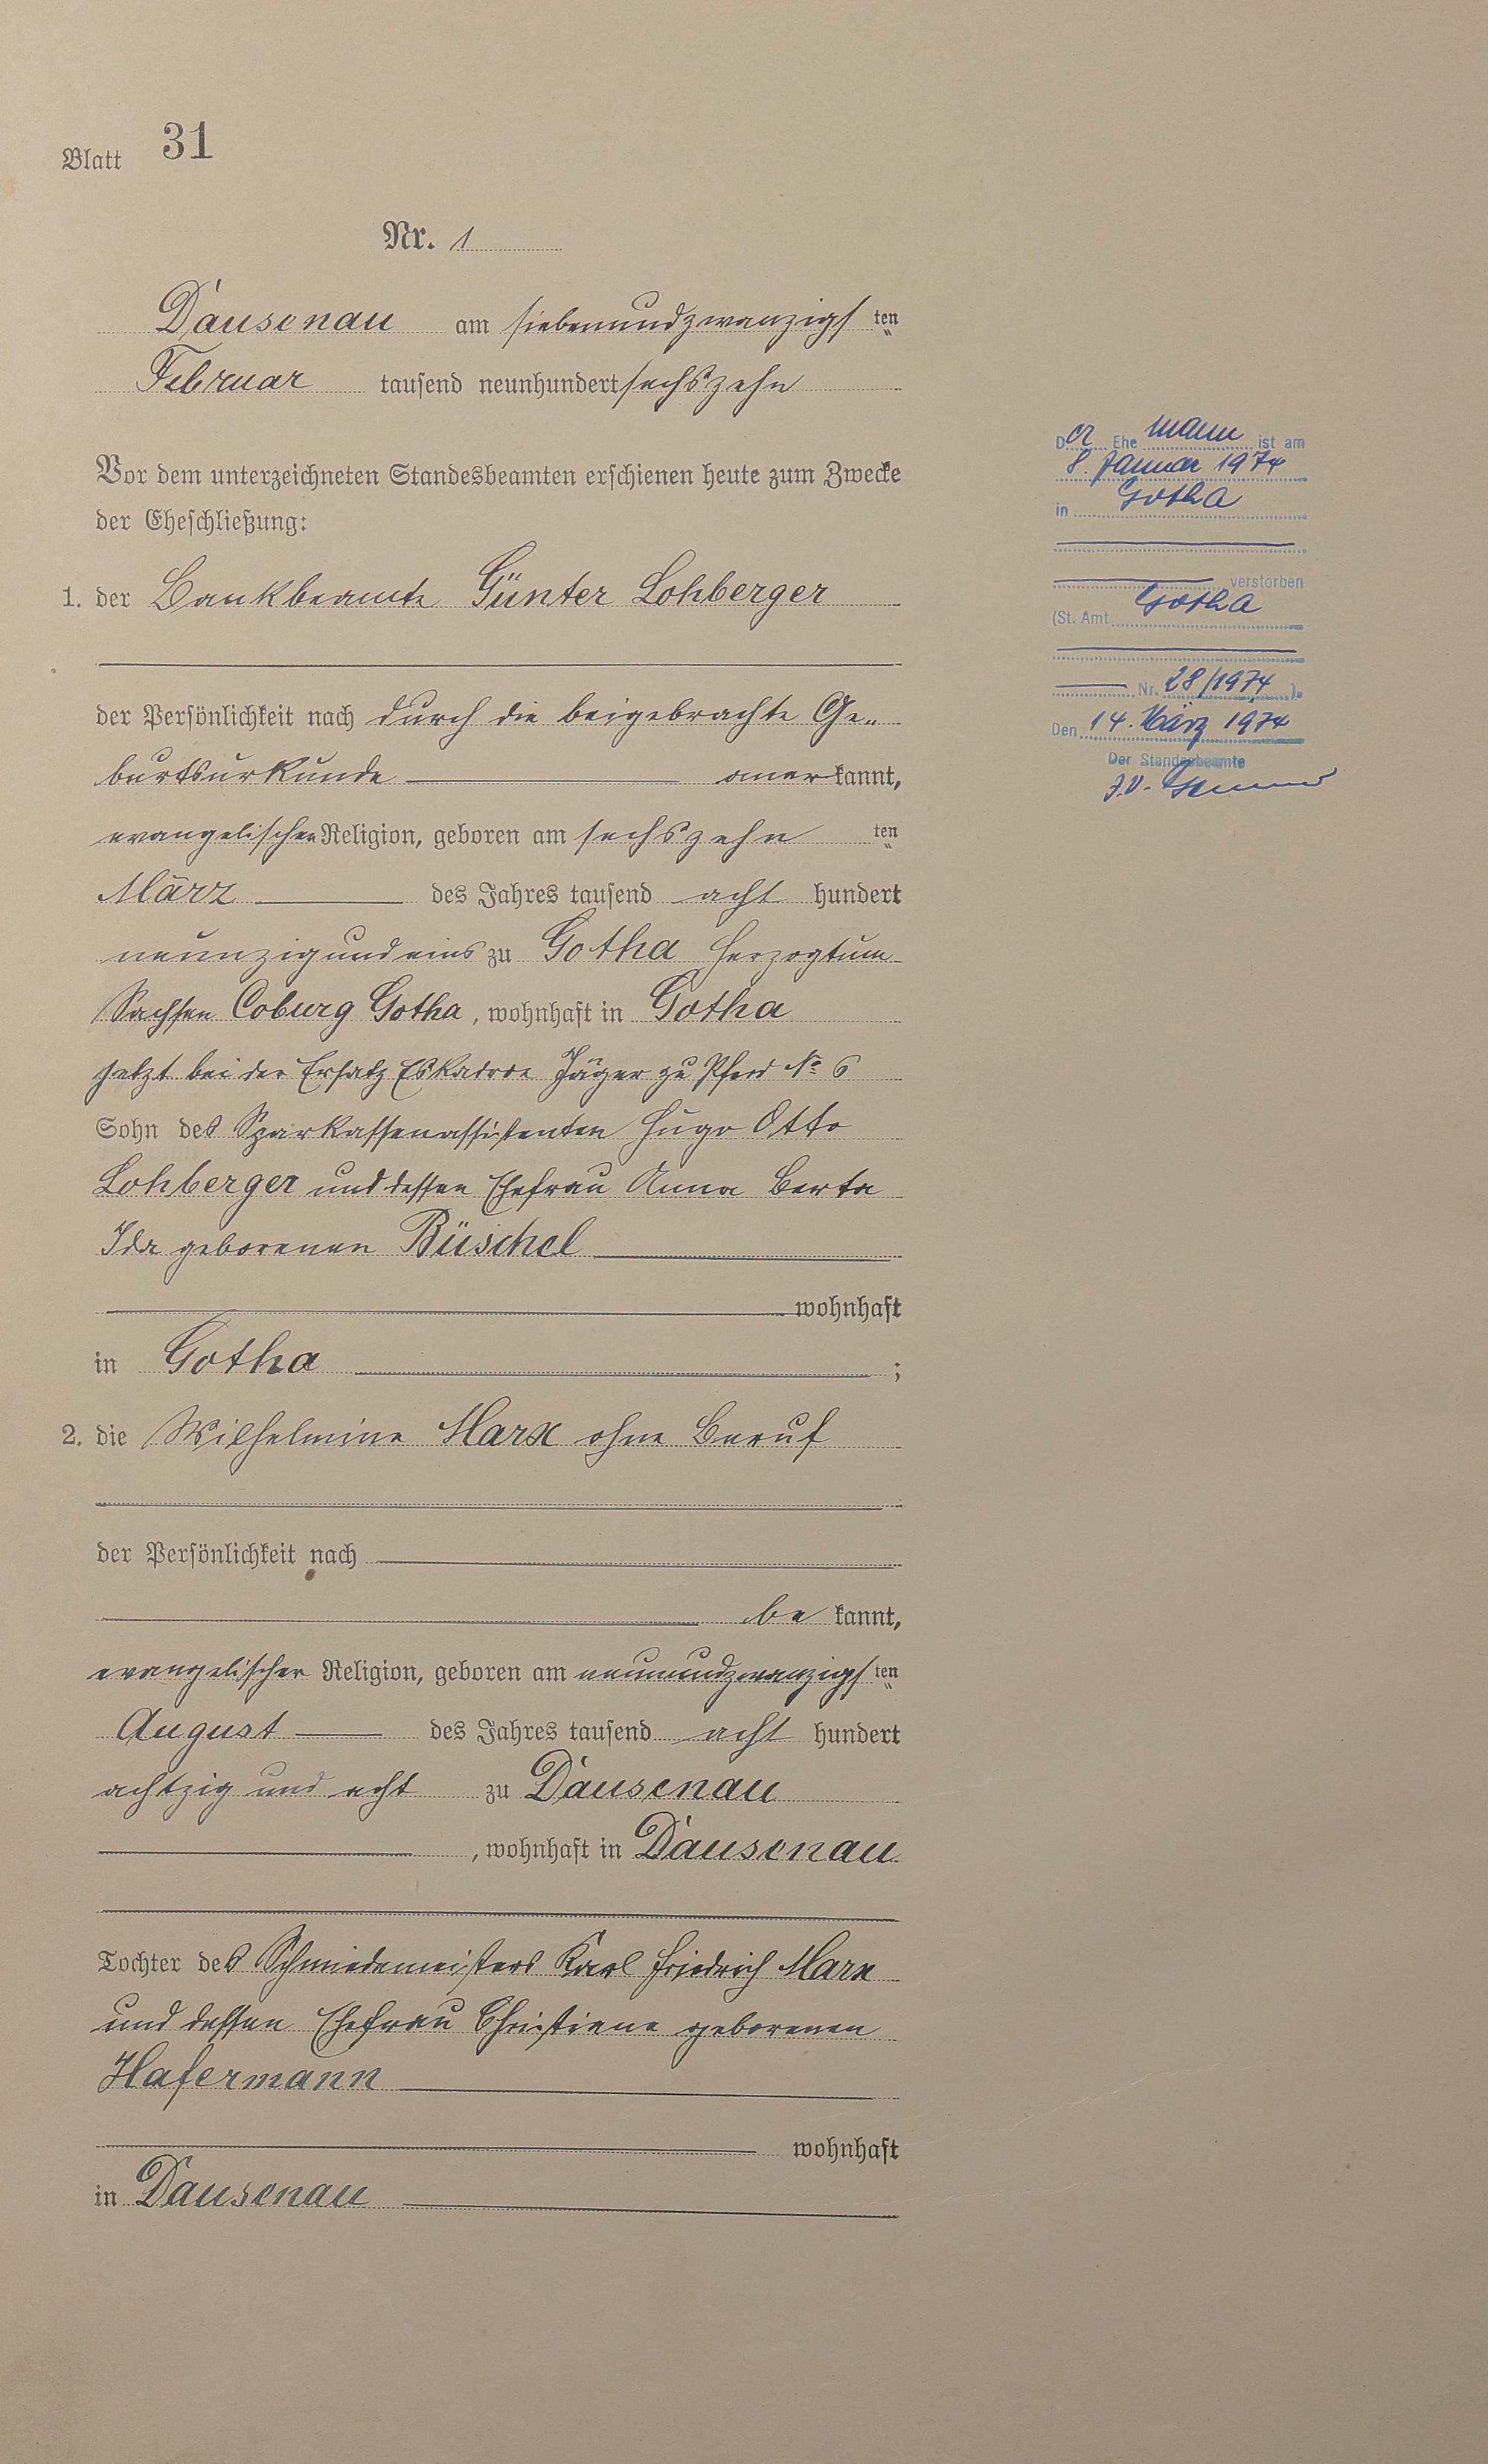 Blatt 31
Nr. 1
Dausenau am siebenundzwanzigsten
Februar tausend neunhundert sechszehn
Vor dem unterzeichneten Standesbeamten erschienen heute zum Zwecke
der Eheschließung:
1. der Bankbeamte Günter Lohberger
der Persönlichkeit nach durch die beigebrachte Ge„
burtsurkunde anerkannt,
evangelischen Religion, geboren am sechszehn ten
März des Jahres tausend acht hundert
neunzigundeins zu Gotha Herzogtum
Sachsen Coburg Gotha, wohnhaft in Gotha
jetzt bei der Ersatz Eskadron Jäger zu Pferd No 6
Sohn des Sparkassenassistenten Hugo Otto
Lohberger und dessen Ehefrau Anna Berta
Ida geborenen Büschel
wohnhaft
in Gotha ;
2. die Wilhelmine Marx ohne Beruf
der Persönlichkeit nach
be kannt,
evangelischer Religion, geboren am neunundzwanzigsten
August des Jahres tausend acht hundert
achtzig und acht zu Dausenau
, wohnhaft in Dausenau
Tochter des Schmiedemeisters Karl Friedrich Marx
und dessen Ehefrau Christiane geborenen
Hafermann
wohnhaft
in Dausenau
Der Ehemann ist am
8. Januar 1974
in Gotha
verstorben
(St. Amt Gotha
Nr. 28/1974 ).
Den 14. März 1974
Der Standesbeamte
J.V.